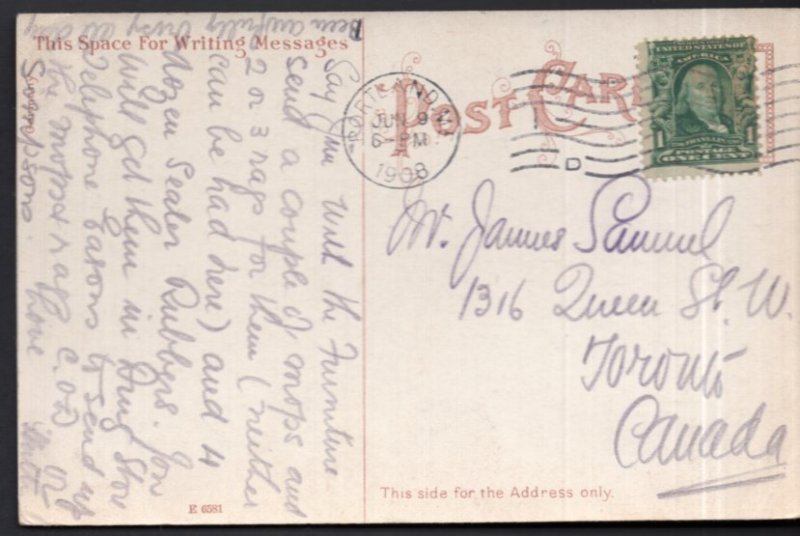 This Space For Writing Messages
Been awfully busy all day
Say Jim with the Furniture
send a couple of mops and
2 or 3 rags for them (neither
can be had here) and 4
dozen Sealer Rubbers. You
will get them in Drug Store
Telephone Eatons to send up
the mops & rags C.O.D. or
Simpsons. Love
POST CARD
PORTLAND
JUN 9
6-PM
1908
D
UNITED STATES OF
AMERICA
FRANKLIN
1 ONE CENT 1
Mr. James Samuel
1316 Queen St. W.
Toronto
Canada
This side for the Address only.
E 6581